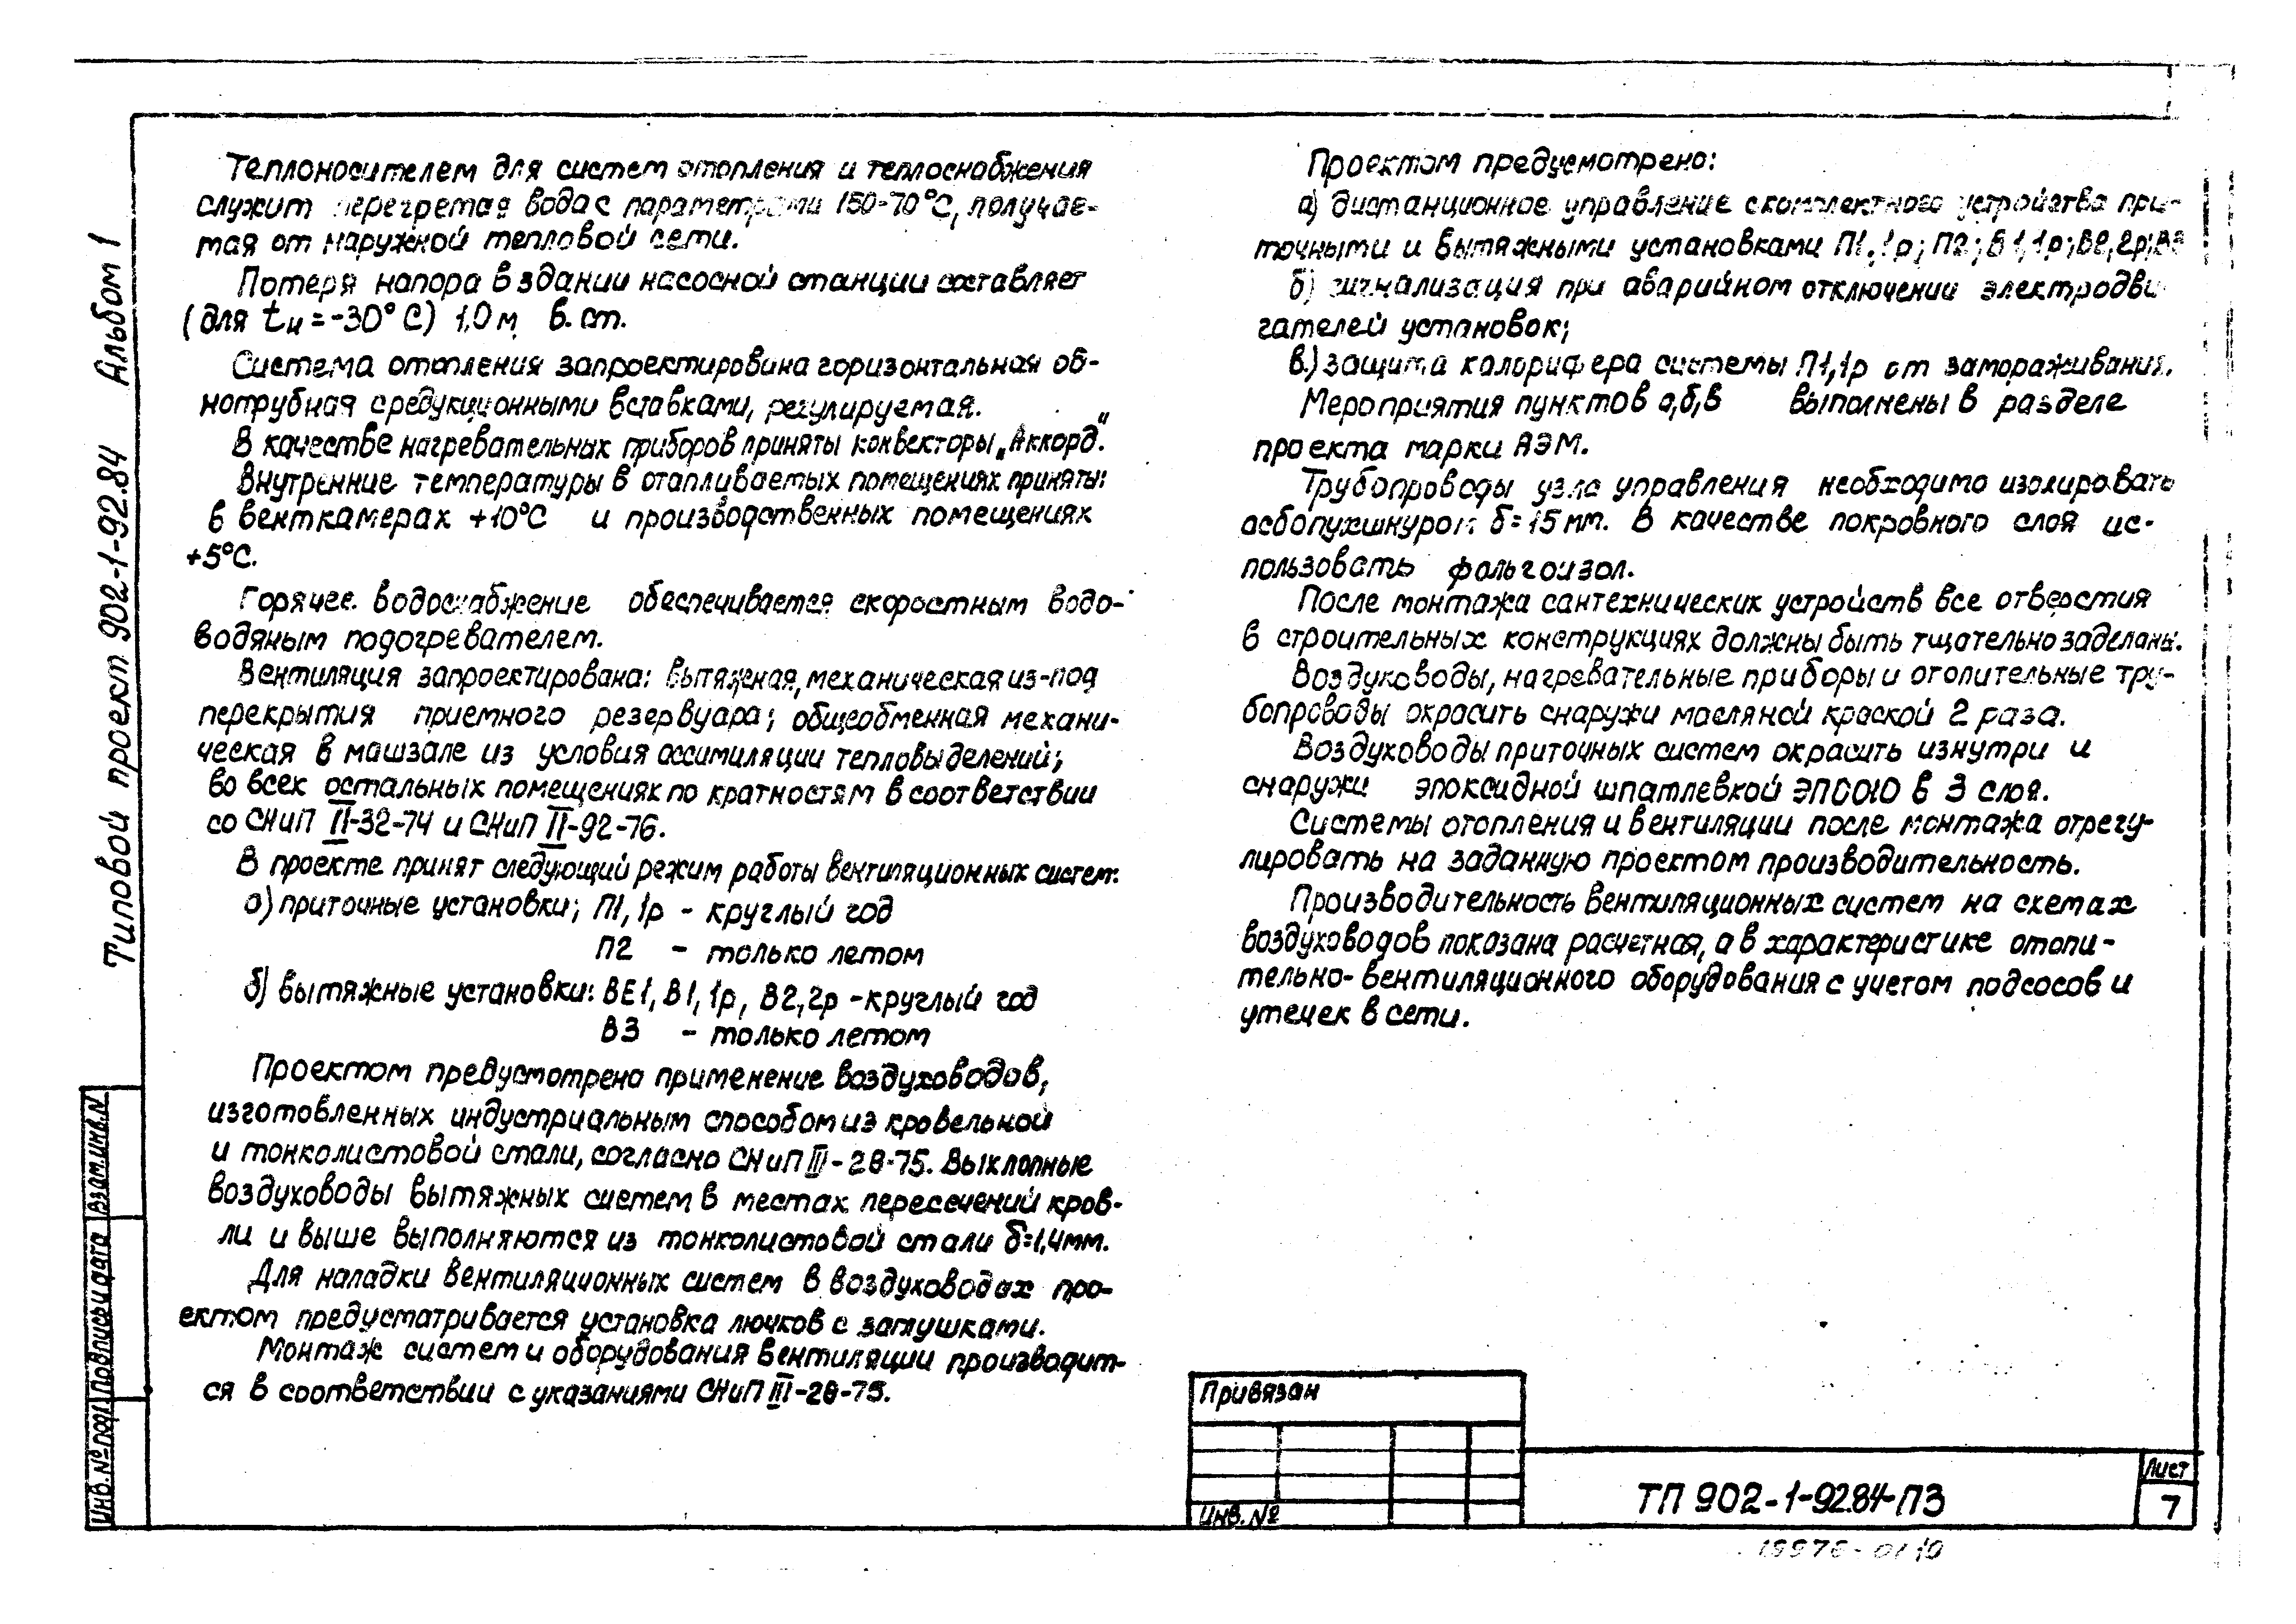 Теплоносителем для систем отопления и теплоснабжения
служит перегретая вода с параметрами 150-70°С, получае-
мая от наружной тепловой сети.
Потеря напора в здании насосной станции составляет
(для tн = -30°С) 1,0 м в. ст.
Система отопления запроектирована горизонтальная од-
нотрубная с редукционными вставками, регулируемая.
В качестве нагревательных приборов приняты конвекторы „Аккорд".
Внутренние температуры в отапливаемых помещениях приняты:
в венткамерах +10°С и производственных помещениях
+5°С.
Горячее водоснабжение обеспечивается скоростным водо-
водяным подогревателем.
Вентиляция запроектирована: вытяжная, механическая из-под
перекрытия приемного резервуара; общеобменная механи-
ческая в машзале из условия ассимиляции тепловыделений;
во всех остальных помещениях по кратностям в соответствии
со СНиП II-32-74 и СНиП II-92-76.
В проекте принят следующий режим работы вентиляционных систем:
а) приточные установки; П1, 1р - круглый год
П2 - только летом
б) вытяжные установки: ВЕ1, В1, 1р, В2, 2р - круглый год
В3 - только летом
Проектом предусмотрена применение воздуховодов,
изготовленных индустриальным способом из кровельной
и тонколистовой стали, согласно СНиП III-28-75. Выхлопные
воздуховоды вытяжных систем в местах пересечений кров-
ли и выше выполняются из тонколистовой стали δ=1,4мм.
Для наладки вентиляционных систем в воздуховодах про-
ектом предусматривается установка лючков с заглушками.
Монтаж систем и оборудования вентиляции производит-
ся в соответствии с указаниями СНиП III-28-75.
Проектом предусмотрено:
а) дистанционное управление с комплектного устройства при-
точными и вытяжными установками П1, 1р; П2; В1, 1р; В2, 2р; В3
б) сигнализация при аварийном отключении электродви
гателей установок;
в.) защита калорифера системы П1, 1р от замораживания.
Мероприятия пунктов а, б, в выполнены в разделе
проекта марки АЭМ.
Трубопроводы узла управления необходимо изолировать
асбопухшнуром δ=15 мм. В качестве покровного слоя ис-
пользовать фольгоизол.
После монтажа сантехнических устройств все отверстия
в строительных конструкциях должны быть тщательно заделаны.
Воздуховоды, нагревательные приборы и отопительные тру-
бопроводы окрасить снаружи масляной краской 2 раза.
Воздуховоды приточных систем окрасить изнутри и
снаружи эпоксидной шпатлевкой ЭП0010 в 3 слоя.
Системы отопления и вентиляции после монтажа отрегу-
лировать на заданную проектом производительность.
Производительность вентиляционных систем на схемах
воздуховодов показана расчетная, а в характеристике отопи-
тельно-вентиляционного оборудования с учетом подсосов и
утечек в сети.
Типовой проект 902-1-92.84 Альбом 1
Инв. № подл Подпись и дата Взам.инв.N
Привязан
Инв. №
ТП 902-1-92.84-ПЗ
Лист
7
19976-01 10